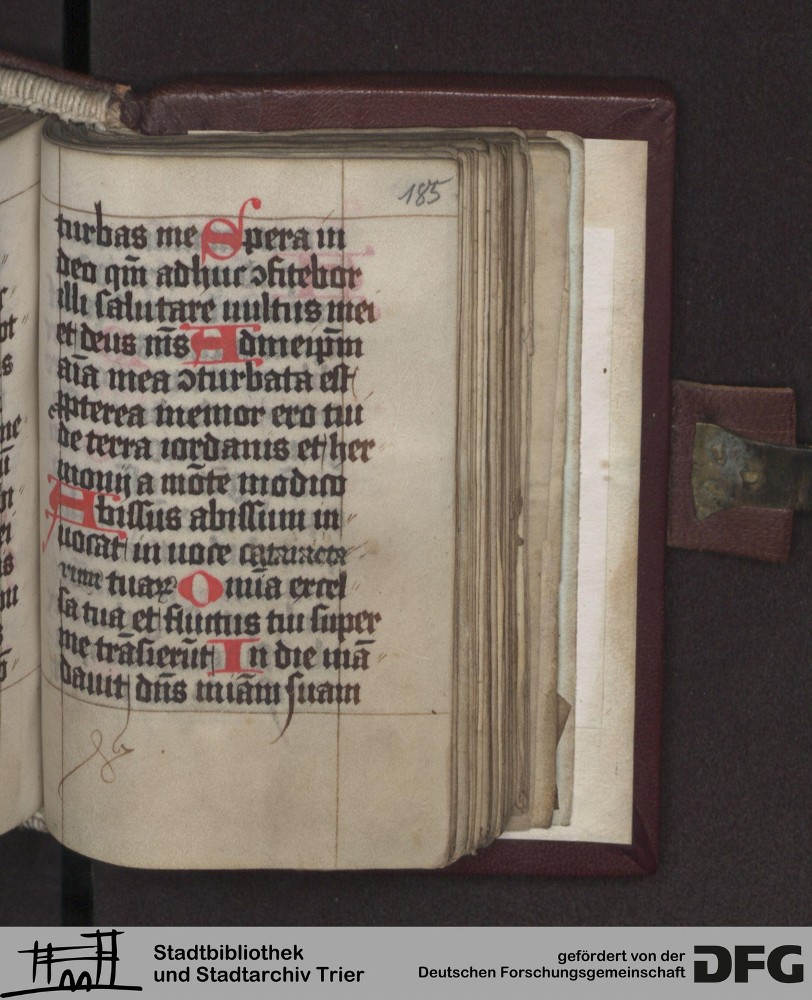 185
turbas me Spera in
deo qm̄ adhuc ɔfitebor
illi salutare uultus mei
et deus m̄s Ad meip̄m
aīa mea ɔturbata est
ꝓpterea memor ero tui
de terra iordanis et her
monij a mōte modico
Abissus abissum in
uocat in uoce cataracta
rum tuaꝝ Omīa excel
sa tua et fluctus tui super
me trāsierūt In die mā
dauit dn̄s mīam suam
Stadtbibliothek
und Stadtarchiv Trier
gefördert von der
Deutschen Forschungsgemeinschaft
DFG